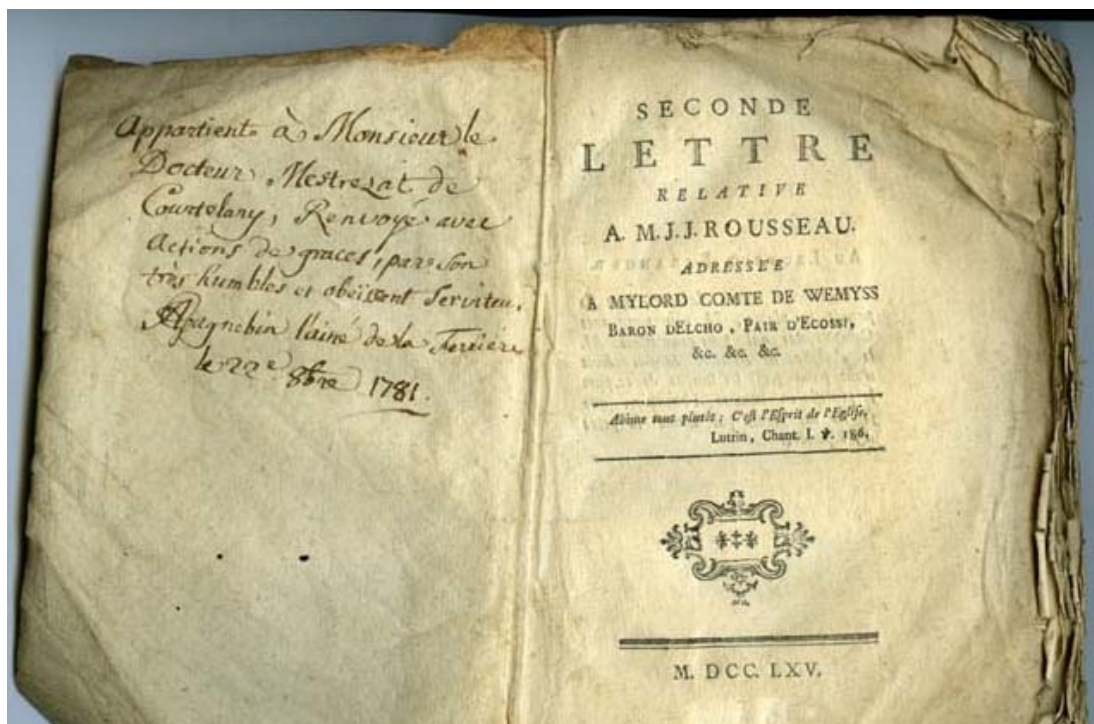 Appartient à Monsieur le
Docteur Mestrezat de
Courtelary, Renvoyé avec
actions de graces, par son
très humbles et obéissent Serviteu.
l'ainé de la
le 22e 8bre 1781.
SECONDE
LETTRE
RELATIVE
A. M. J. J. ROUSSEAU.
ADRESSÉE
A MYLORD COMTE DE WEMYSS
BARON DELCHO, PAIR D'ECOSSE,
&c. &c. &c.
Abîme tout plutôt; C'est l'Esprit de l'Eglise,
Lutrin, Chant. I. ℣. 186.
M. DCC. LXV.